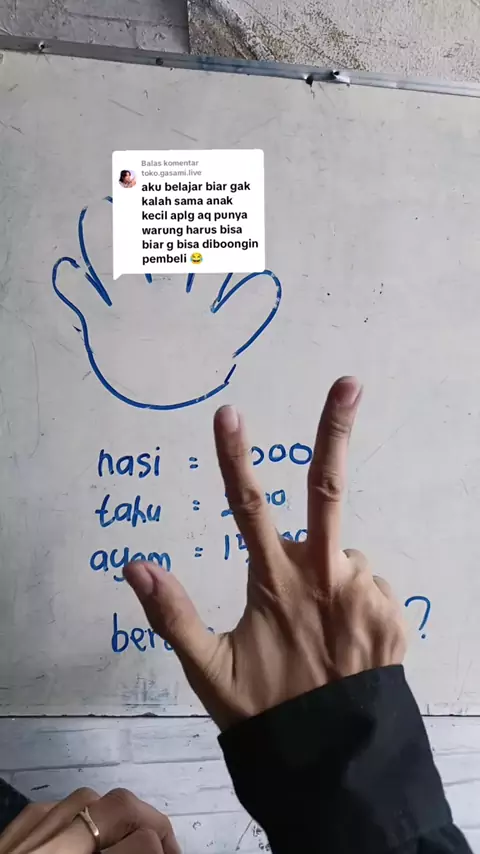 Balas komentar
toko.gasami.live
aku belajar biar gak
kalah sama anak
kecil aplg aq punya
warung harus bisa
biar g bisa diboongin
pembeli 😂
nasi =
tahu =
ayam =
?